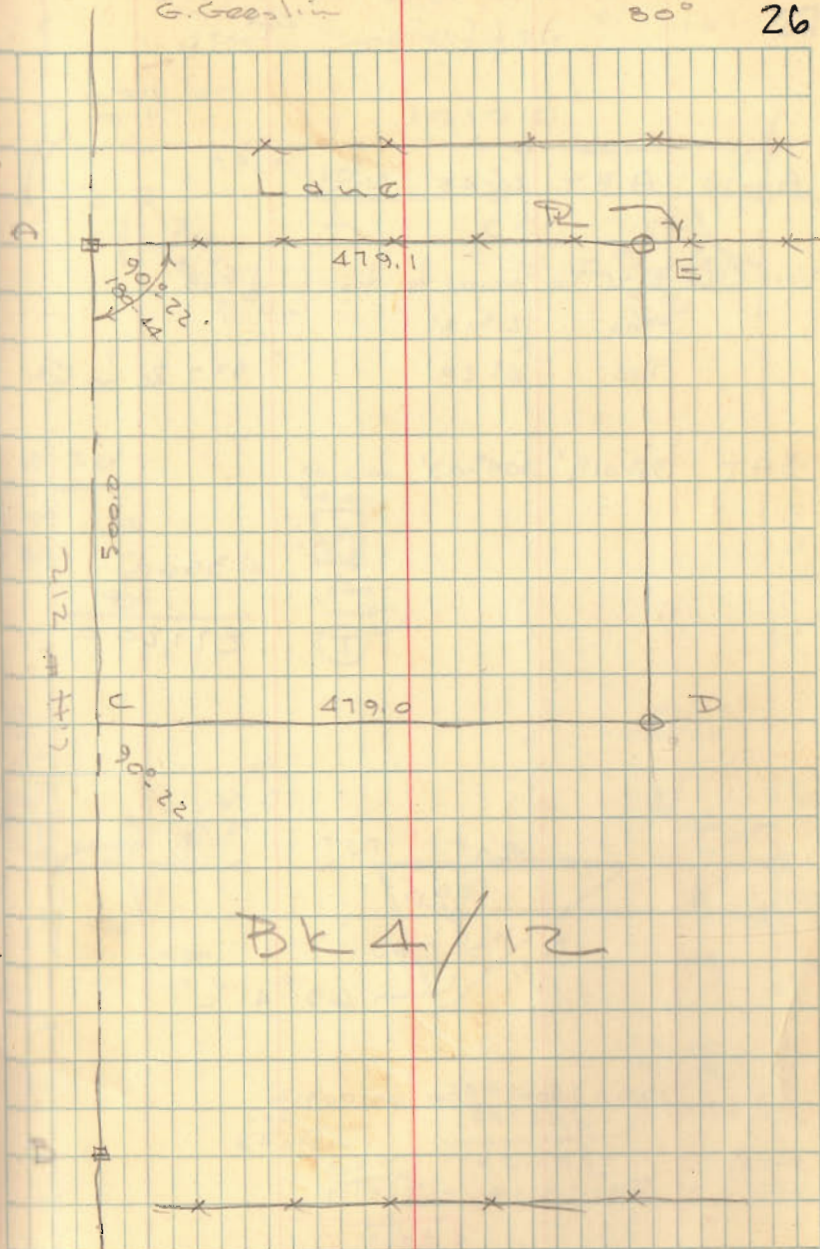 G. Geeslin 80° 26
Lane
PL
479.1
E
90°-22'
180-44
500.0
212
C 479.0 D
90°-22
Bk 4/12